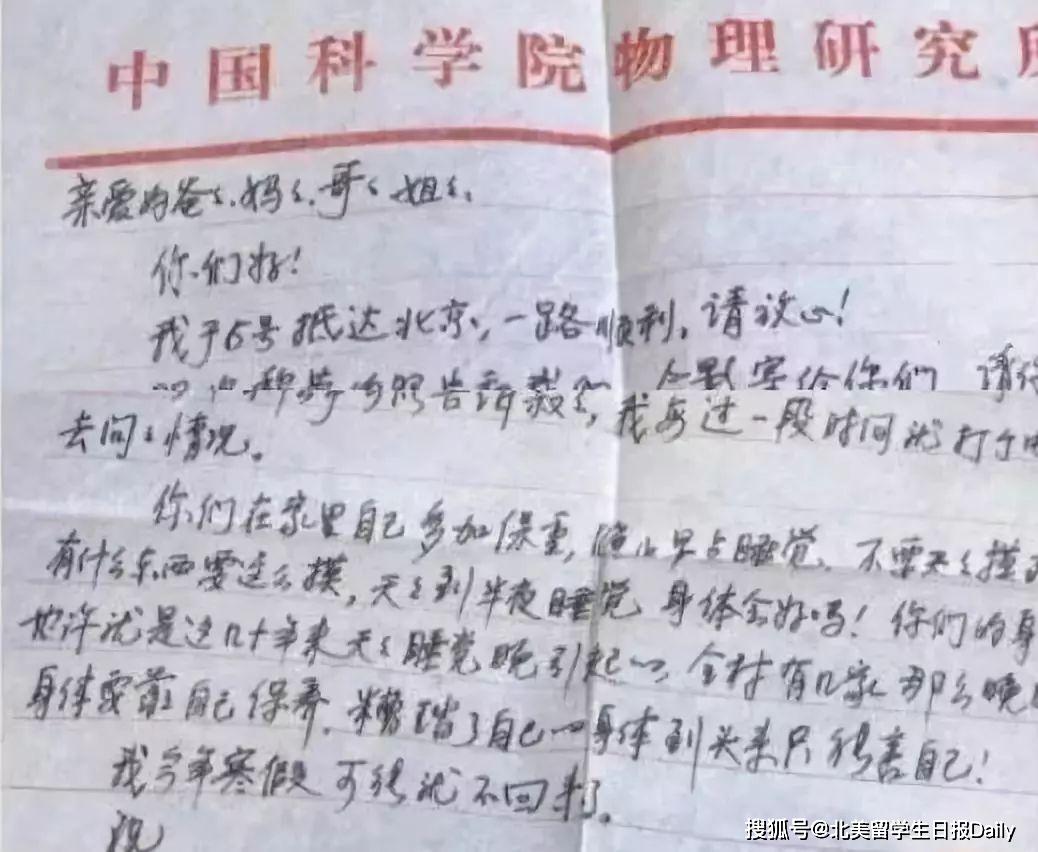 中国科学院物理研究所
亲爱的爸々、妈々、哥々、姐々、
你们好！
我于5号抵达北京，一路顺利，请放心！
告诉 寄给你们 请
去问々情况。 我每过一段时间就打个
你们在家里自己多加保重，早点睡觉、不要天々摸
有什么东西要这么摸，天々到半夜睡觉 身体会好吗！你们的身
也许就是这几十年来天々睡觉晚引起的，全村有几家那么晚
身体要靠自己保养，糟踏了自己的身体到头来只能害自己！
我今年寒假可能就不回来了。
祝
搜狐号@北美留学生日报Daily